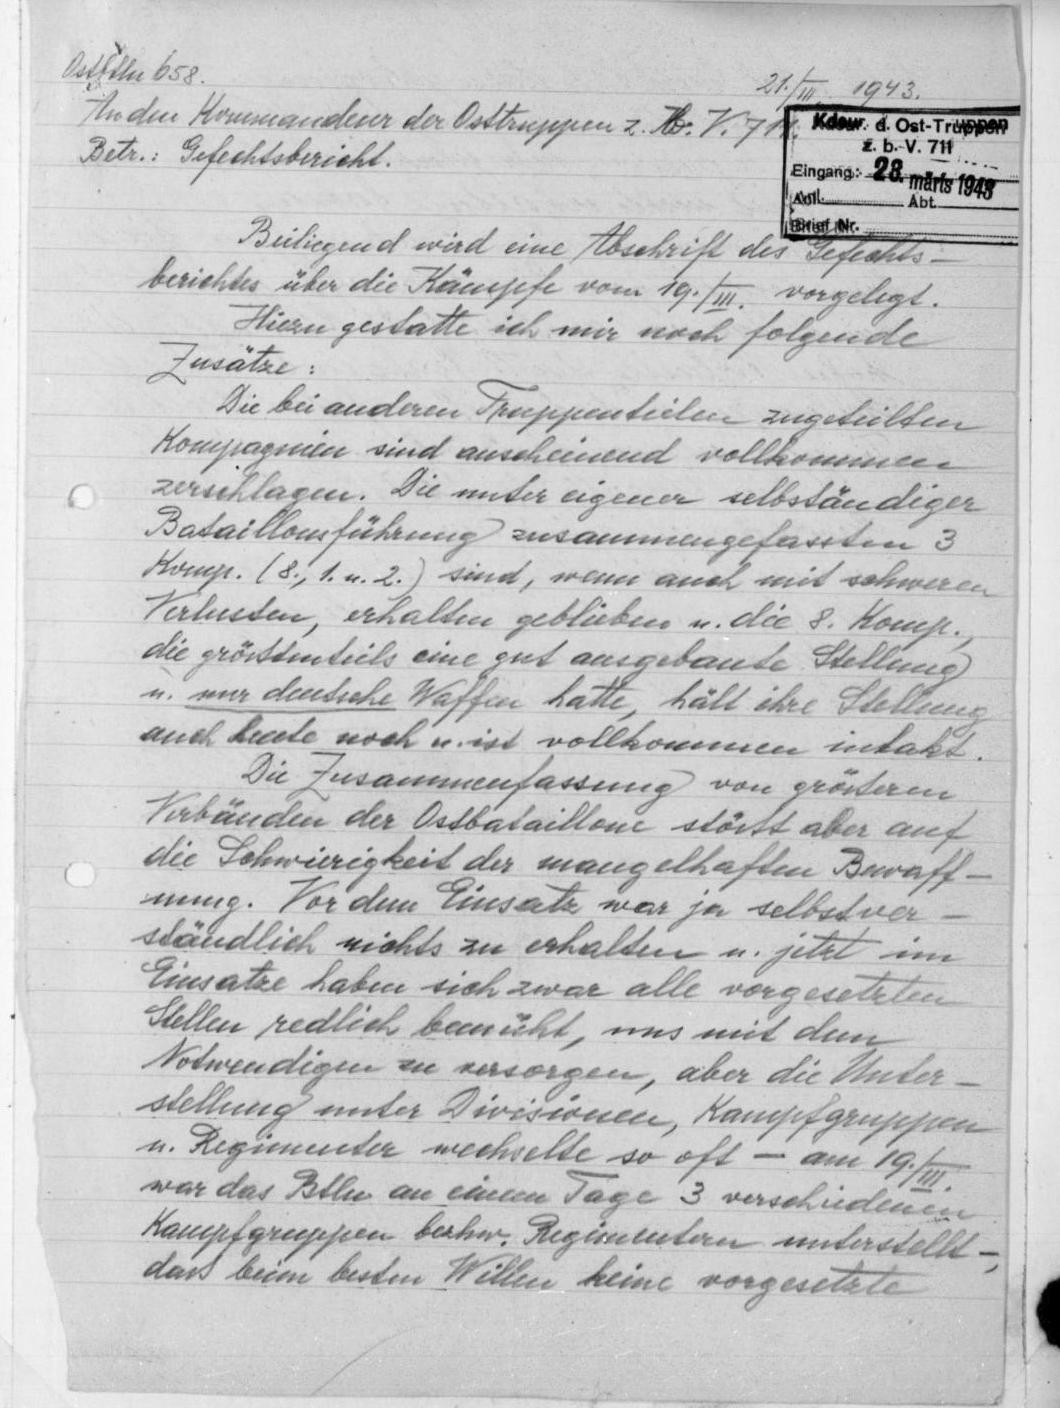 Ostbtln 658.
21./III. 1943.
An den Kommandeur der Osttruppen z. b. V. 711.
Betr.: Gefechtsbericht.
Kdeur. d. Ost-Truppen
z. b. V. 711
Eingang: 23. märts 1943
Anl. Abt.
Brief Nr.
Beiliegend wird eine Abschrift des Gefechts-
berichtes über die Kämpfe vom 19./III. vorgelegt.
Hiezu gestatte ich mir noch folgende
Zusätze:
Die bei anderen Truppenteilen zugeteilten
Kompagnien sind anscheinend vollkommen
zerschlagen. Die unter eigener selbständiger
Bataillonsführung zusammengefassten 3
Komp. (8., 1. u. 2.) sind, wenn auch mit schweren
Verlusten, erhalten geblieben u. die 8. Komp.,
die grösstenteils eine gut ausgebaute Stellung
u. nur deutsche Waffen hatte, hält ihre Stellung
auch heute noch u. ist vollkommen intakt.
Die Zusammenfassung von grösseren
Verbänden der Ostbataillone stösst aber auf
die Schwierigkeit der mangelhaften Bewaff-
nung. Vor dem Einsatz war ja selbstver-
ständlich nichts zu erhalten u. jetzt im
Einsatze haben sich zwar alle vorgesetzten
Stellen redlich bemüht, uns mit dem
Notwendigen zu versorgen, aber die Unter-
stellung unter Divisionen, Kampfgruppen
u. Regimenter wechselte so oft - am 19./III.
war das Btln an einem Tage 3 verschiedenen
Kampfgruppen bezhw. Regimentern unterstellt -,
dass beim besten Willen keine vorgesetzte